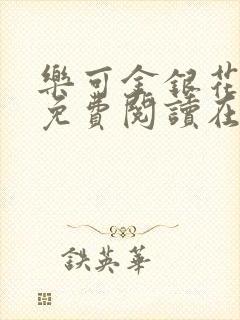 樂可金銀花
免費閱讀在
鉄英華